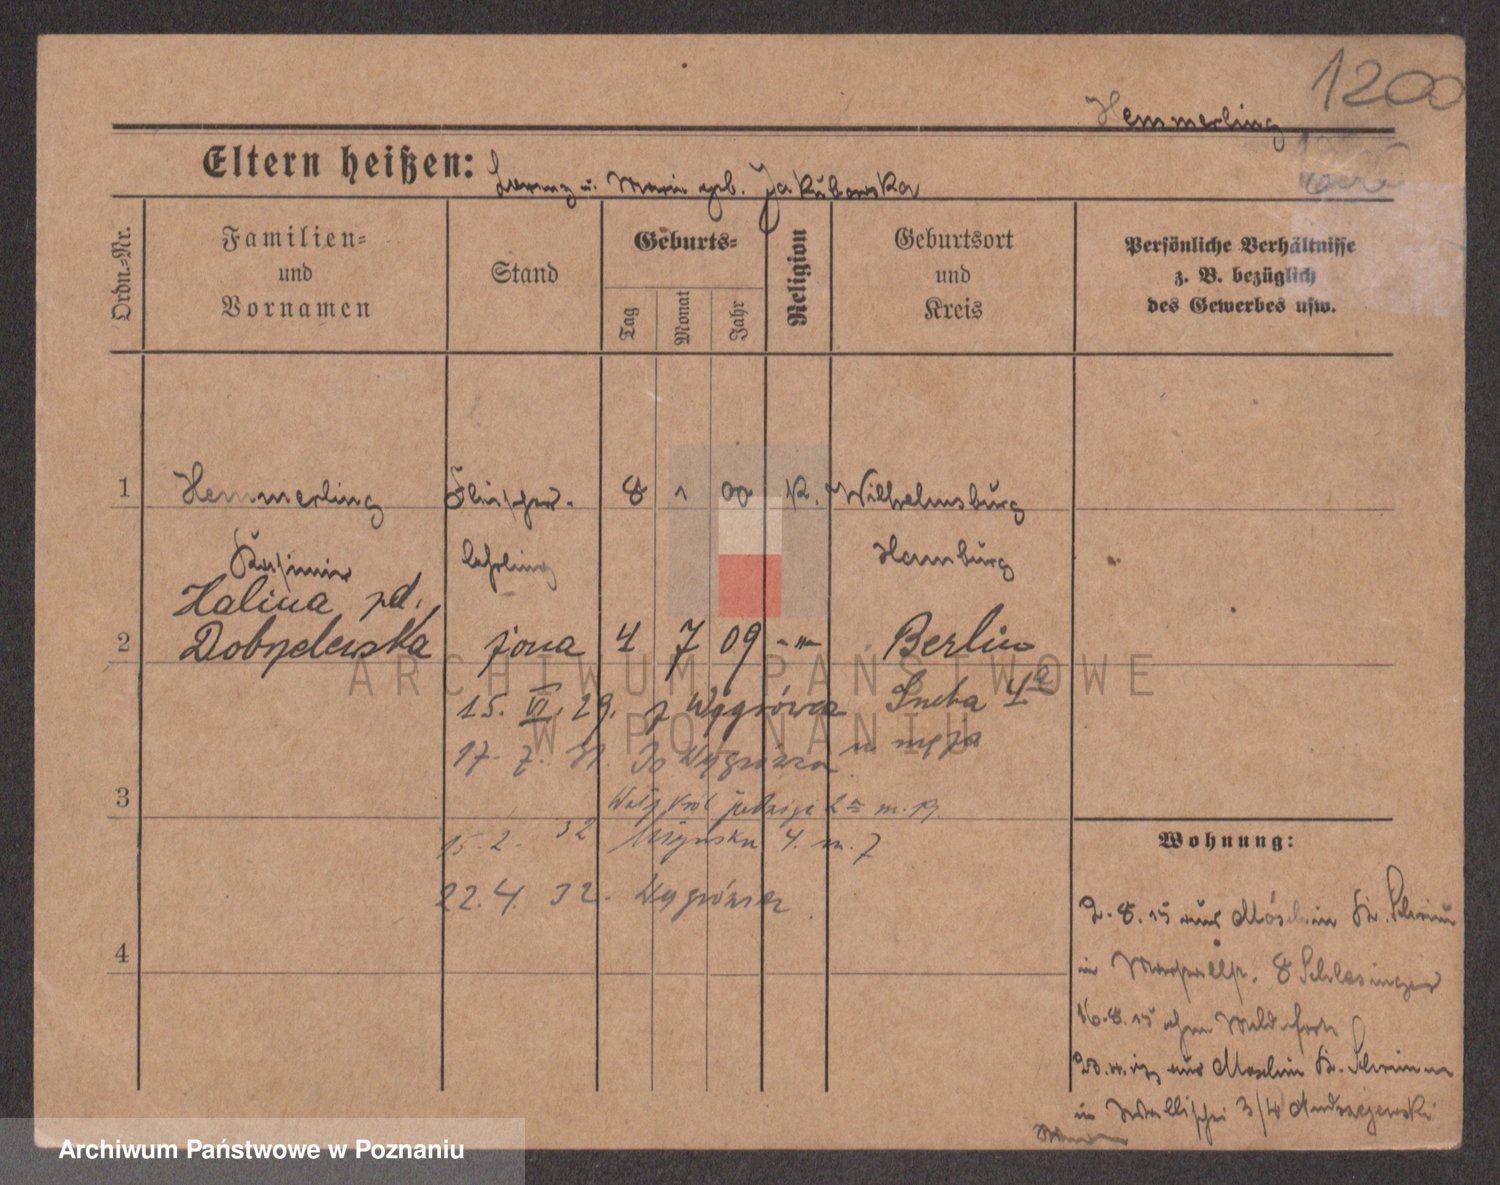 1200
Hemmerling
Eltern heißen: Lorenz u. Marie geb. Jakubowska
Ordn.-Nr.
Familien-
und
Vornamen
Stand
Geburts-
Tag
Monat
Jahr
Religion
Geburtsort
und
Kreis
Persönliche Verhältnisse
z. B. bezüglich
des Gewerbes usw.
1 Hemmerling Fleischer- 8 1 00 K. Wilhelmsburg
Kasimir lehrling Hamburg
Halina zd.
2 Dobrzelewska żona 4 7 09 -"- Berlin
15. VI. 29. z Wągrówca 4a
17. 7. 31. Do Wągrówca u męża
3
15. 2. 32 4. m. 7
22. 4. 32. Wągrówiec
4
Wohnung:
2.8.15 aus Moschin Kr. Schrimm
in 8 Schlesinger
16.8.15 ohne
aus Moschin Kr. Schrimm
in Wallischei 3/4 Andrzejewski
ARCHIWUM PAŃSTWOWE
W POZNANIU
Archiwum Państwowe w Poznaniu